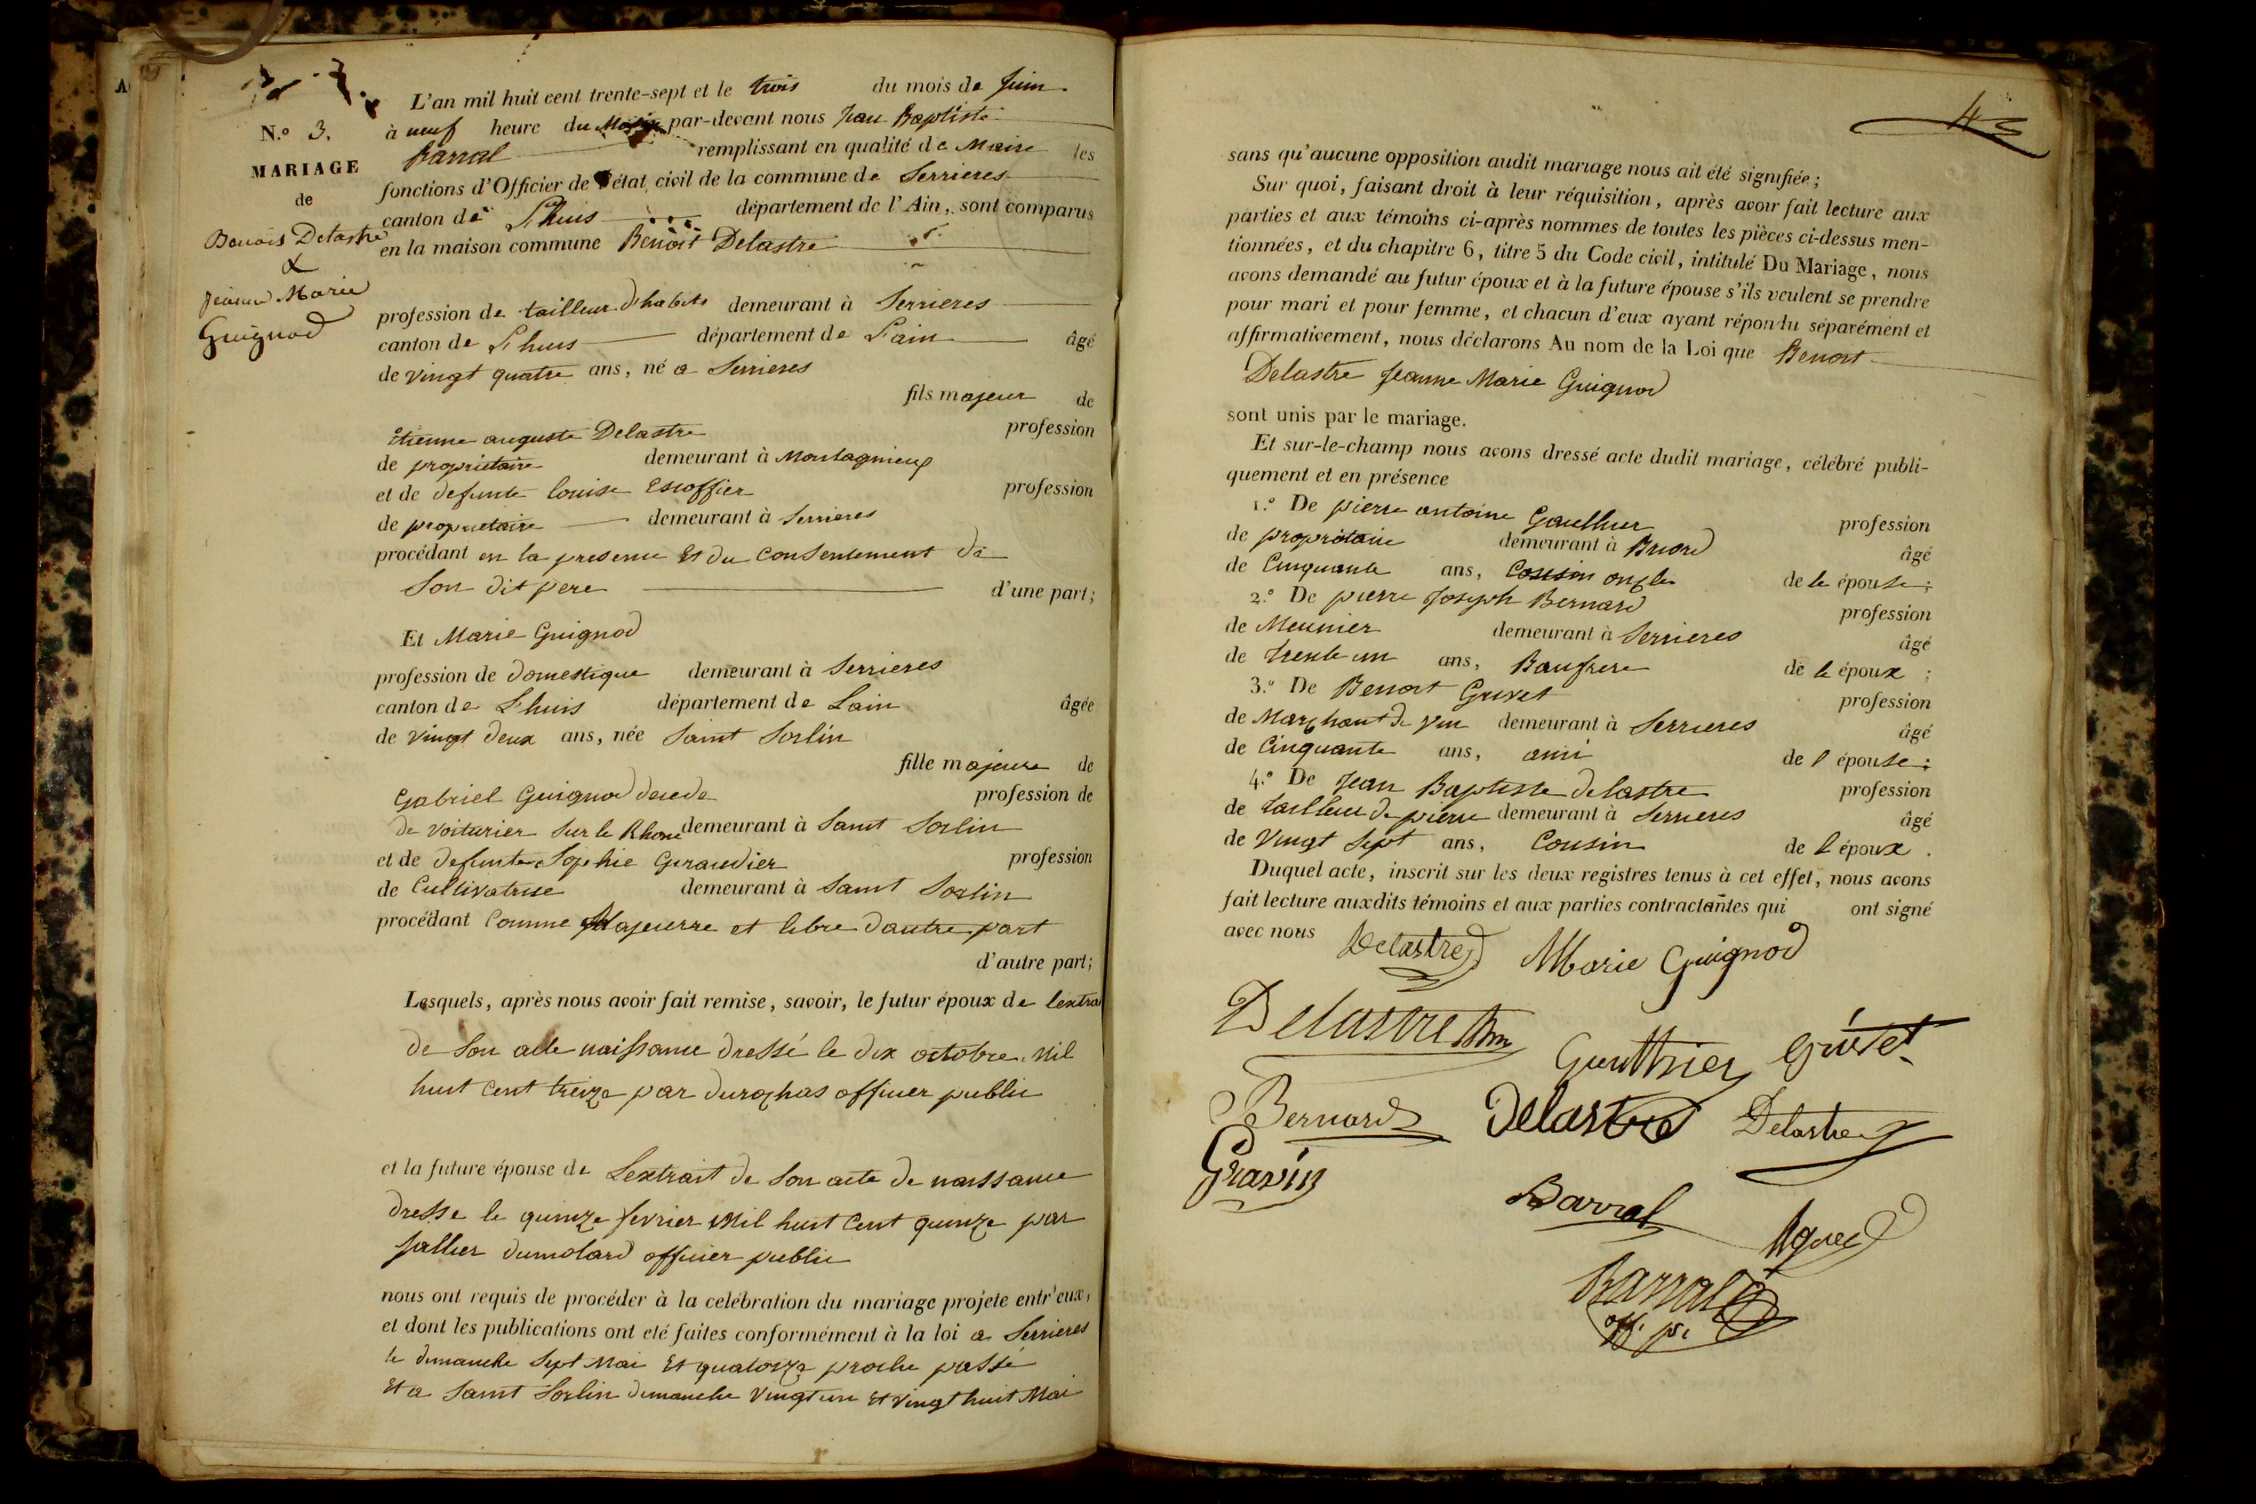 L'an mil huit cent trente-sept et le trois du mois de Juin
à neuf heure du Matin par-devant nous Jean Baptiste
Barral remplissant en qualité de Maire les
fonctions d'Officier de l'état civil de la commune de Serrieres
canton de Lhuis département de l'Ain, sont comparus
en la maison commune Benoit Delastre
N.º 3.
MARIAGE
de
Benoit Delastre
&
Jeanne Marie
Guignod
profession de tailleur d'habits demeurant à Serrieres
canton de Lhuis département de L'ain âgé
de vingt quatre ans, né a Serrieres
fils majeur de
Etienne auguste Delastre profession
de propriétaire demeurant à Montagnieux
et de defunte louise Escoffier profession
de propriétaire demeurant à Serrieres
procédant en la presence Et du Consentement de
Son dit pere d'une part;
Et Marie Guignod
profession de domestique demeurant à Serrieres
canton de Lhuis département de Lain âgée
de vingt deux ans, née Saint Sorlin
fille majeure de
Gabriel Guignod decede profession de
de voiturier Sur le Rhone demeurant à Saint Sorlin
et de defunte Sophie Giraudier profession
de Cultivatrise demeurant à Saint Sorlin
procédant Comme Majeurre et libre dautre part
d'autre part;
Lesquels, après nous avoir fait remise, savoir, le futur époux de lextrai
de Son acte naissance dressé le dix octobre Mil
huit Cent treize par durochas officier public
et la future épouse de Lextrait de Son acte de naissance
dresse le quinze fevrier Mil huit Cent quinze par
Jallier dumolard officier public
nous ont requis de procéder à la célébration du mariage projeté entr'eux,
et dont les publications ont été faites conformément à la loi a Serrieres
le dimanche Sept Mai Et quatorze proche passé
Et a Saint Sorlin dimanche vingt un Et vingt huit Mai
43
sans qu'aucune opposition audit mariage nous ait été signifiée;
Sur quoi, faisant droit à leur réquisition, après avoir fait lecture aux
parties et aux témoins ci-après nommés de toutes les pièces ci-dessus men-
tionnées, et du chapitre 6, titre 5 du Code civil, intitulé Du Mariage, nous
avons demandé au futur époux et à la future épouse s'ils veulent se prendre
pour mari et pour femme, et chacun d'eux ayant répondu séparément et
affirmativement, nous déclarons Au nom de la Loi que Benoit
Delastre Jeanne Marie Guignod
sont unis par le mariage.
Et sur-le-champ nous avons dressé acte dudit mariage, célébré publi-
quement et en présence
1.º De pierre antoine Gautthier profession
de propriétaire demeurant à Briord âgé
de Cinquante ans, Cousin oncle de le épouse;
2.º De pierre Joseph Bernard profession
de Meunier demeurant à Serrieres âgé
de trente un ans, Baufrere de le époux;
3.º De Benoit Grivet profession
de Marchant de vin demeurant à Serrieres âgé
de Cinquante ans, ami de l épouse;
4.º De Jean Baptiste delastre profession
de tailleur de pierre demeurant à Serrieres âgé
de Vingt Sept ans, Cousin de l époux.
Duquel acte, inscrit sur les deux registres tenus à cet effet, nous avons
fait lecture auxdits témoins et aux parties contractantes qui ont signé
avec nous Delastre Marie Guignod
Delastre Gautthier Grivet
Bernard Delastre Delastre
Gravin
Barral
Barral
off. p.